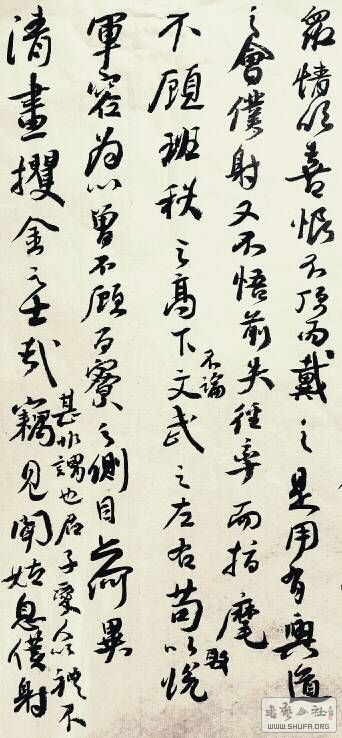 眾情欣喜恨不頂而戴之是用有興道
之會僕射又不悟前失徑率而指麾
不顧班秩之高下不論文武之左右苟以取悅
軍容為心曾不顧百寮之側目亦何異
清晝攫金之士哉甚非謂也君子愛人以禮不竊見聞姑息僕射
WWW.SHUFA.ORG